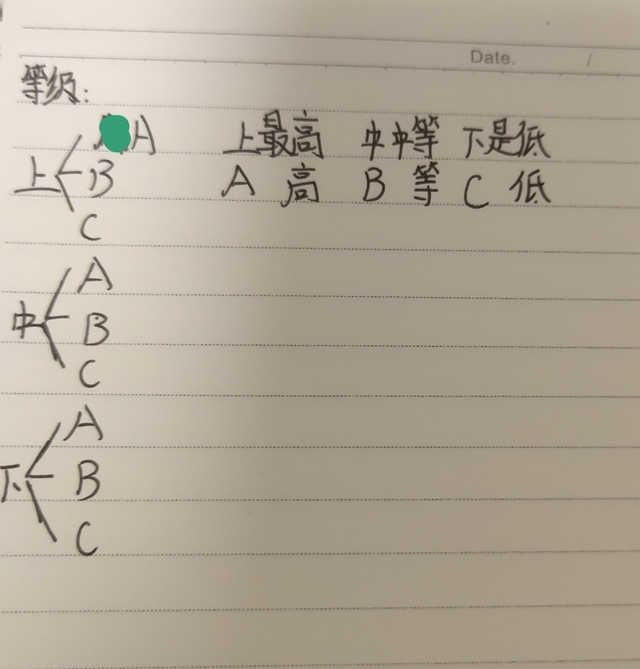 Date. /
等级:
A 上最高 中中等 下是低
上 B A 高 B 等 C 低
C
A
中 B
C
A
下 B
C